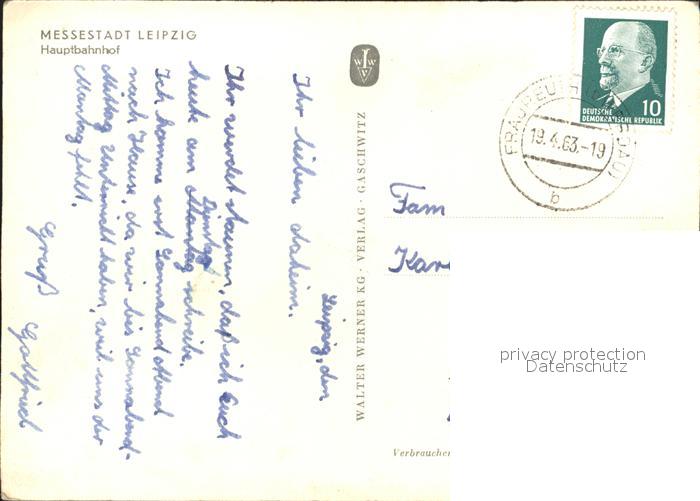 MESSESTADT LEIPZIG
Hauptbahnhof
WWV
DEUTSCHE
DEMOKRATISCHE REPUBLIK
10
FRAUREUTH
19.4.63.-19
b
Leipzig, den
Ihr lieben daheim.
Ihr werdet staunen, daß ich Euch
heute am Montag schreibe.
Dienstag
Ich komme erst Sonnabend Abend
nach Hause, da wir bis Sonnabend-
Mittag Unterricht haben, weil uns der
Montag fehlt.
Gruß Gottfried
WALTER WERNER KG · VERLAG · GASCHWITZ
Fam
Kar
Verbraucher
privacy protection
Datenschutz